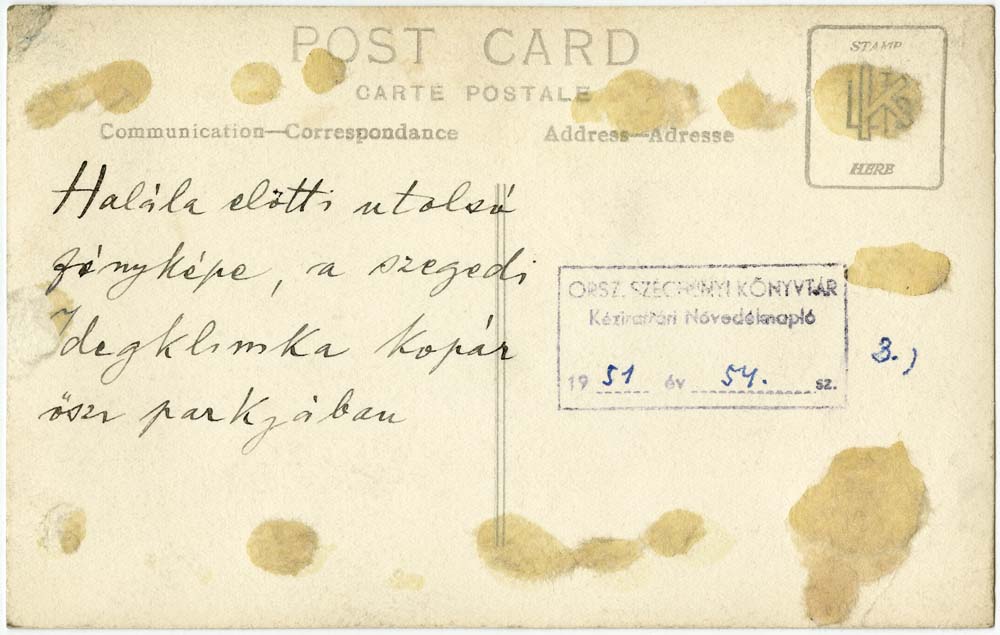 POST CARD
CARTE POSTALE
STAMP
HERE
Communication—Correspondance
Address—Adresse
Halála előtti utolsó
fényképe, a szegedi
Idegklinika kopár
őszi parkjában
ORSZ. SZÉCHÉNYI KÖNYVTÁR
Kézirattári Növedéknapló
1951 év 54. sz.
3.)